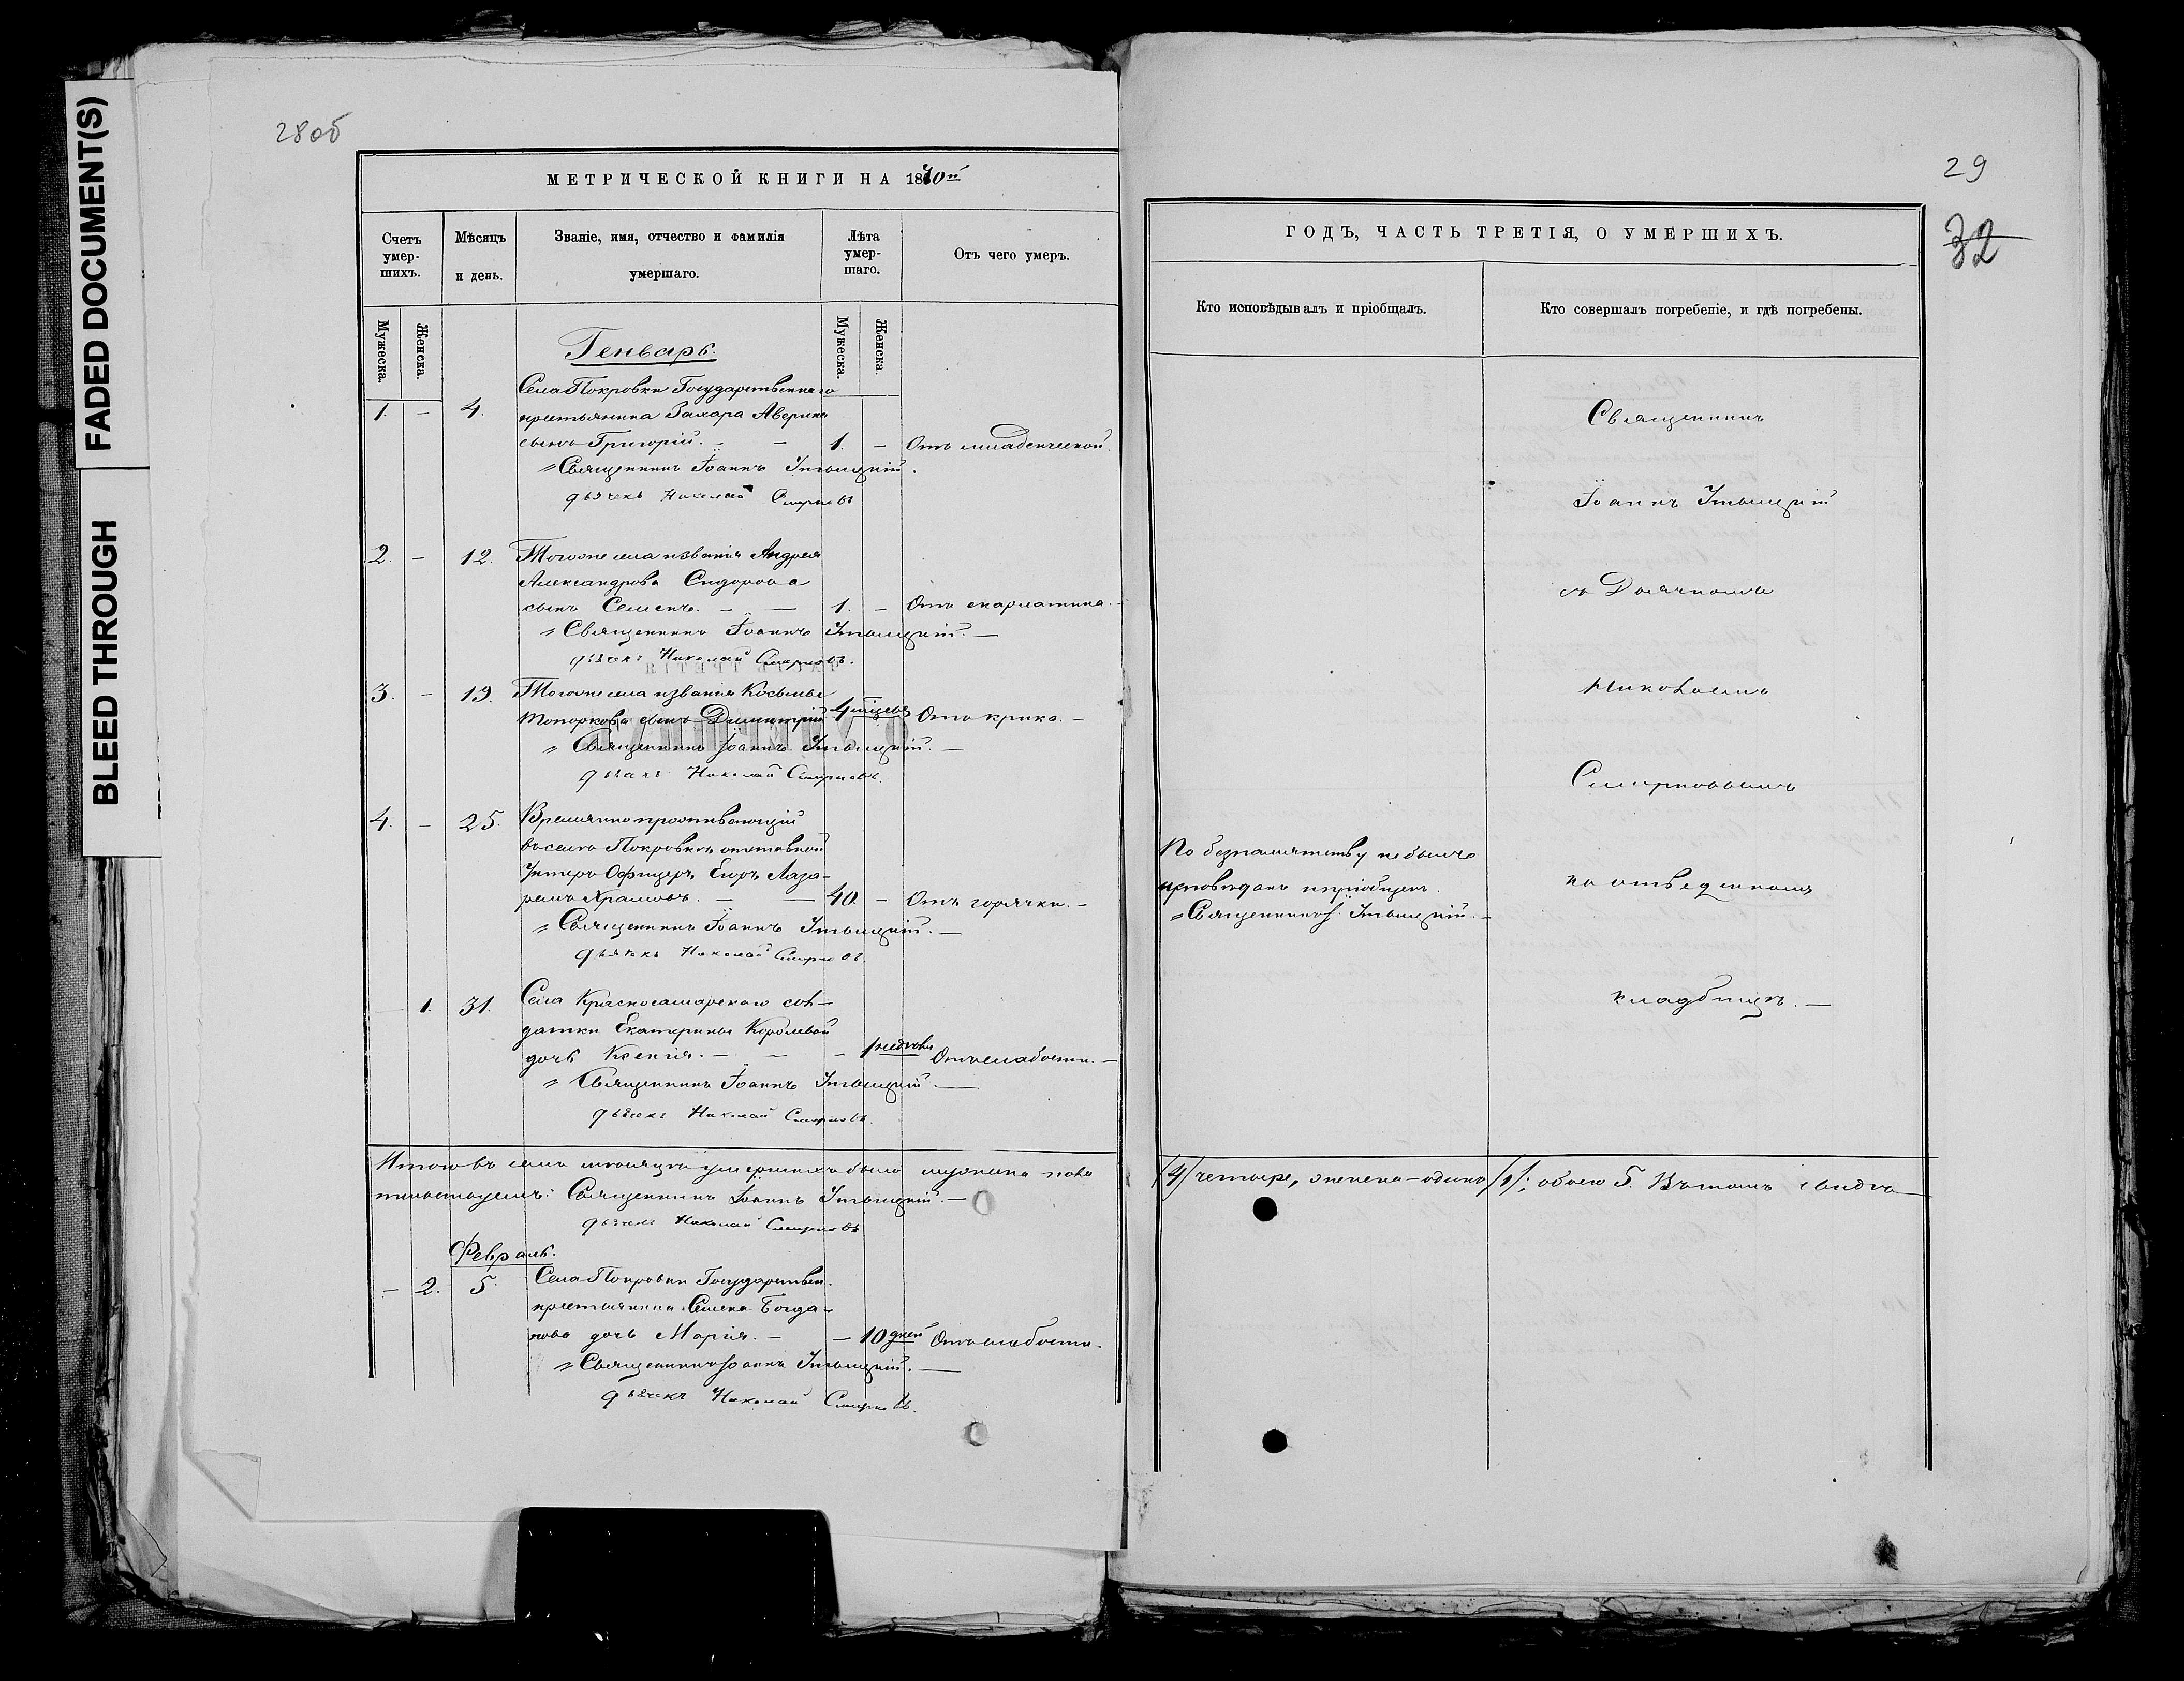 FADED DOCUMENT(S)
BLEED THROUGH
28об
МЕТРИЧЕСКОЙ КНИГИ НА 1870й
Счетъ умер-шихъ.
Мѣсяцъ и день.
Званіе, имя, отчество и фамилія умершаго.
Лѣта умер-шаго.
Отъ чего умеръ.
Мужеска.
Женска.
Мужеска.
Женска.
Генварь.
Села Покровки Государственнаго
1. – 4. крестьянина Захара Аверина
сынъ Григорій. – 1. – Отъ младенческой.
Священникъ Іоаннъ
дьячекъ Николай Смирновъ
2. – 12. Тогоже села и званія Андрея
Александрова Сидорова
сынъ Семенъ. – – 1. – Отъ скарлатина. –
Священникъ Іоаннъ
дьячекъ Николай Смирновъ.
3. – 19. Тогоже села и званія Косьмы
Топоркова сынъ Димитрій 4 мѣсяцъ Отъ крика. –
Священникъ Іоаннъ
дьячекъ Николай Смирновъ.
4. – 25. Временно проживающій
въ селѣ Покровкѣ отставной
Унтеръ-Офицеръ Егоръ Лаза-
ревъ Храмовъ. – – 40. – Отъ горячки. –
Священникъ Іоаннъ
дьячекъ Николай Смирновъ
1. 31. Села Красносамарскаго сол-
датки Екатерины Королевой
дочь Ксенія. – – – 1 недѣли Отъ слабости. –
Священникъ Іоаннъ
дьячекъ Николай Смирновъ.
Итого въ семъ мѣсяцѣ умершихъ было мужеска пола
Священникъ Іоаннъ
дьячекъ Николай Смирновъ
Февраль.
– 2. 5. Села Покровки Государствен.
крестьянина Семена Богда-
нова дочь Марія. – – 10 дней Отъ слабости.
Священникъ Іоаннъ
дьячекъ Николай Смирновъ.
29
32
ГОДЪ, ЧАСТЬ ТРЕТІЯ, О УМЕРШИХЪ.
Кто исповѣдывалъ и пріобщалъ.
Кто совершалъ погребеніе, и гдѣ погребены.
Священникъ
Іоаннъ
съ Дьячкомъ
Николаемъ
Смирновымъ
на отведенномъ
кладбищѣ. –
По безпамятству не былъ
исповѣданъ и пріобщенъ.
Священникъ І.
/4/ четыре, женска – одинъ /1/; обоего 5. Въ томъ